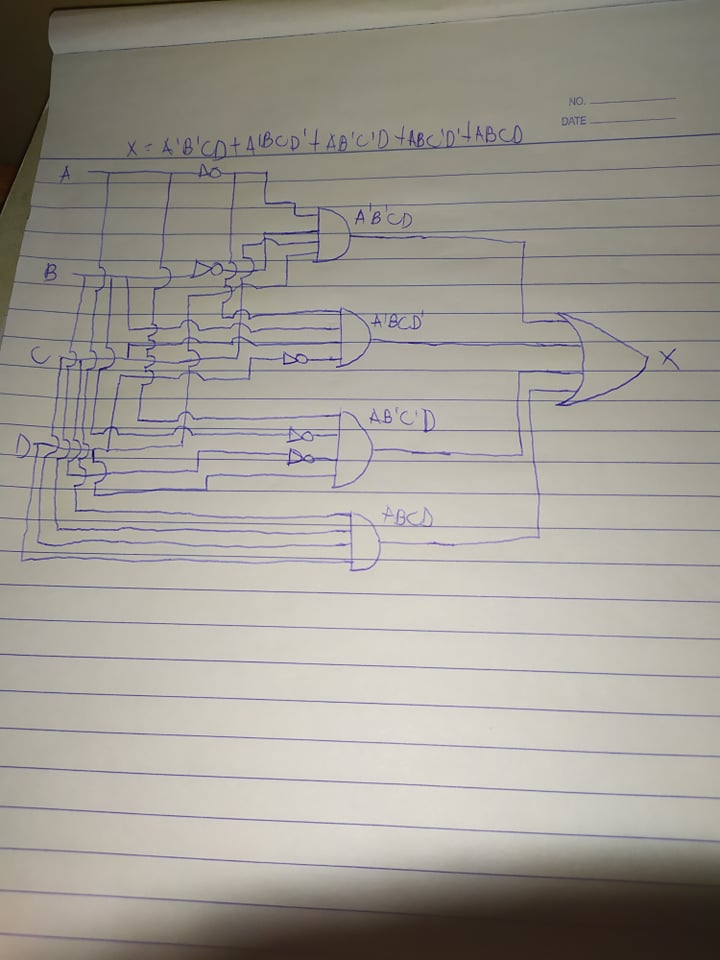 NO.
DATE
X = A'B'CD + A'BCD' + AB'C'D + ABC'D' + ABCD
A
A'B'CD
B
A'BCD'
C
X
AB'C'D
D
ABCD